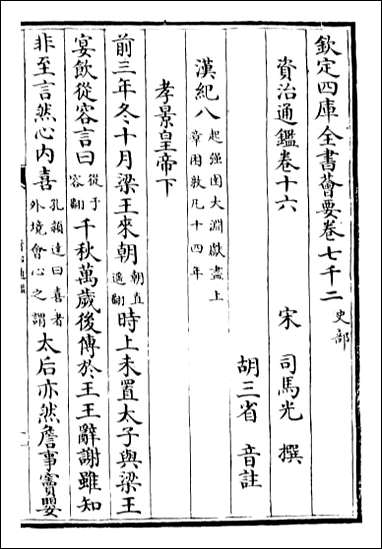 欽定四庫全書薈要卷七千二 史部
資治通鑑卷十六 宋 司馬光 撰
胡三省 音註
漢紀八 起強圉大淵獻盡上章困敦凡十四年
孝景皇帝下
前三年冬十月梁王來朝朝直遥翻時上未置太子與梁王
宴飲從容言曰從于容翻千秋萬歲後傳於王王辭謝雖知
非至言然心內喜孔穎達曰喜者外境會心之謂太后亦然詹事竇嬰